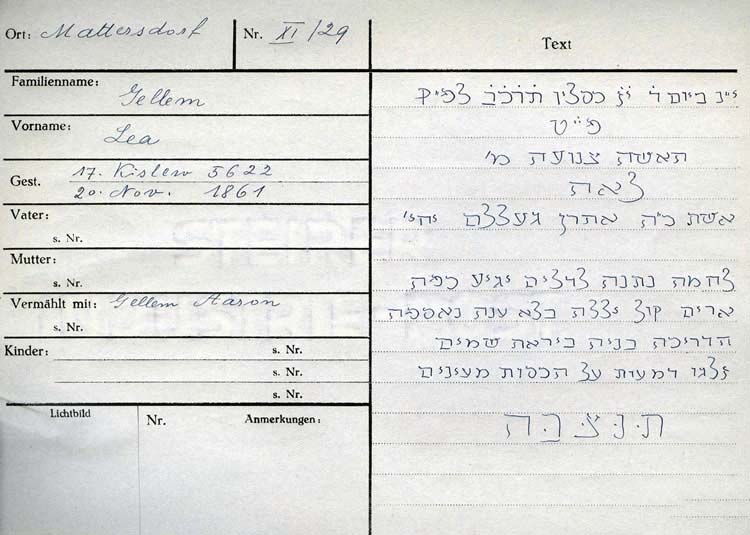 Ort: Mattersdorf
Nr. XI/29
Text
Familienname: Gellem
Vorname: Lea
Gest. 17. Kislew 5622
20. Nov. 1861
Vater:
s. Nr.
Mutter:
s. Nr.
Vermählt mit: Gellem Aaron
s. Nr.
Kinder: s. Nr.
s. Nr.
s. Nr.
Lichtbild
Nr.
Anmerkungen:
ביום ד׳ י״ז כסליו תרכב לפ״ק
פ״ט
האשה צנועת מ׳
לאה
אשת כ״ה אהרן געללם
לחמה נתנה לדלים יגיע כפיה
ארים קול יללה בלא נאספה
הדריכה בניה ביראת שמים
זלגו דמעות על הכסות מעינים
ת׳נ׳צ׳ב׳ה